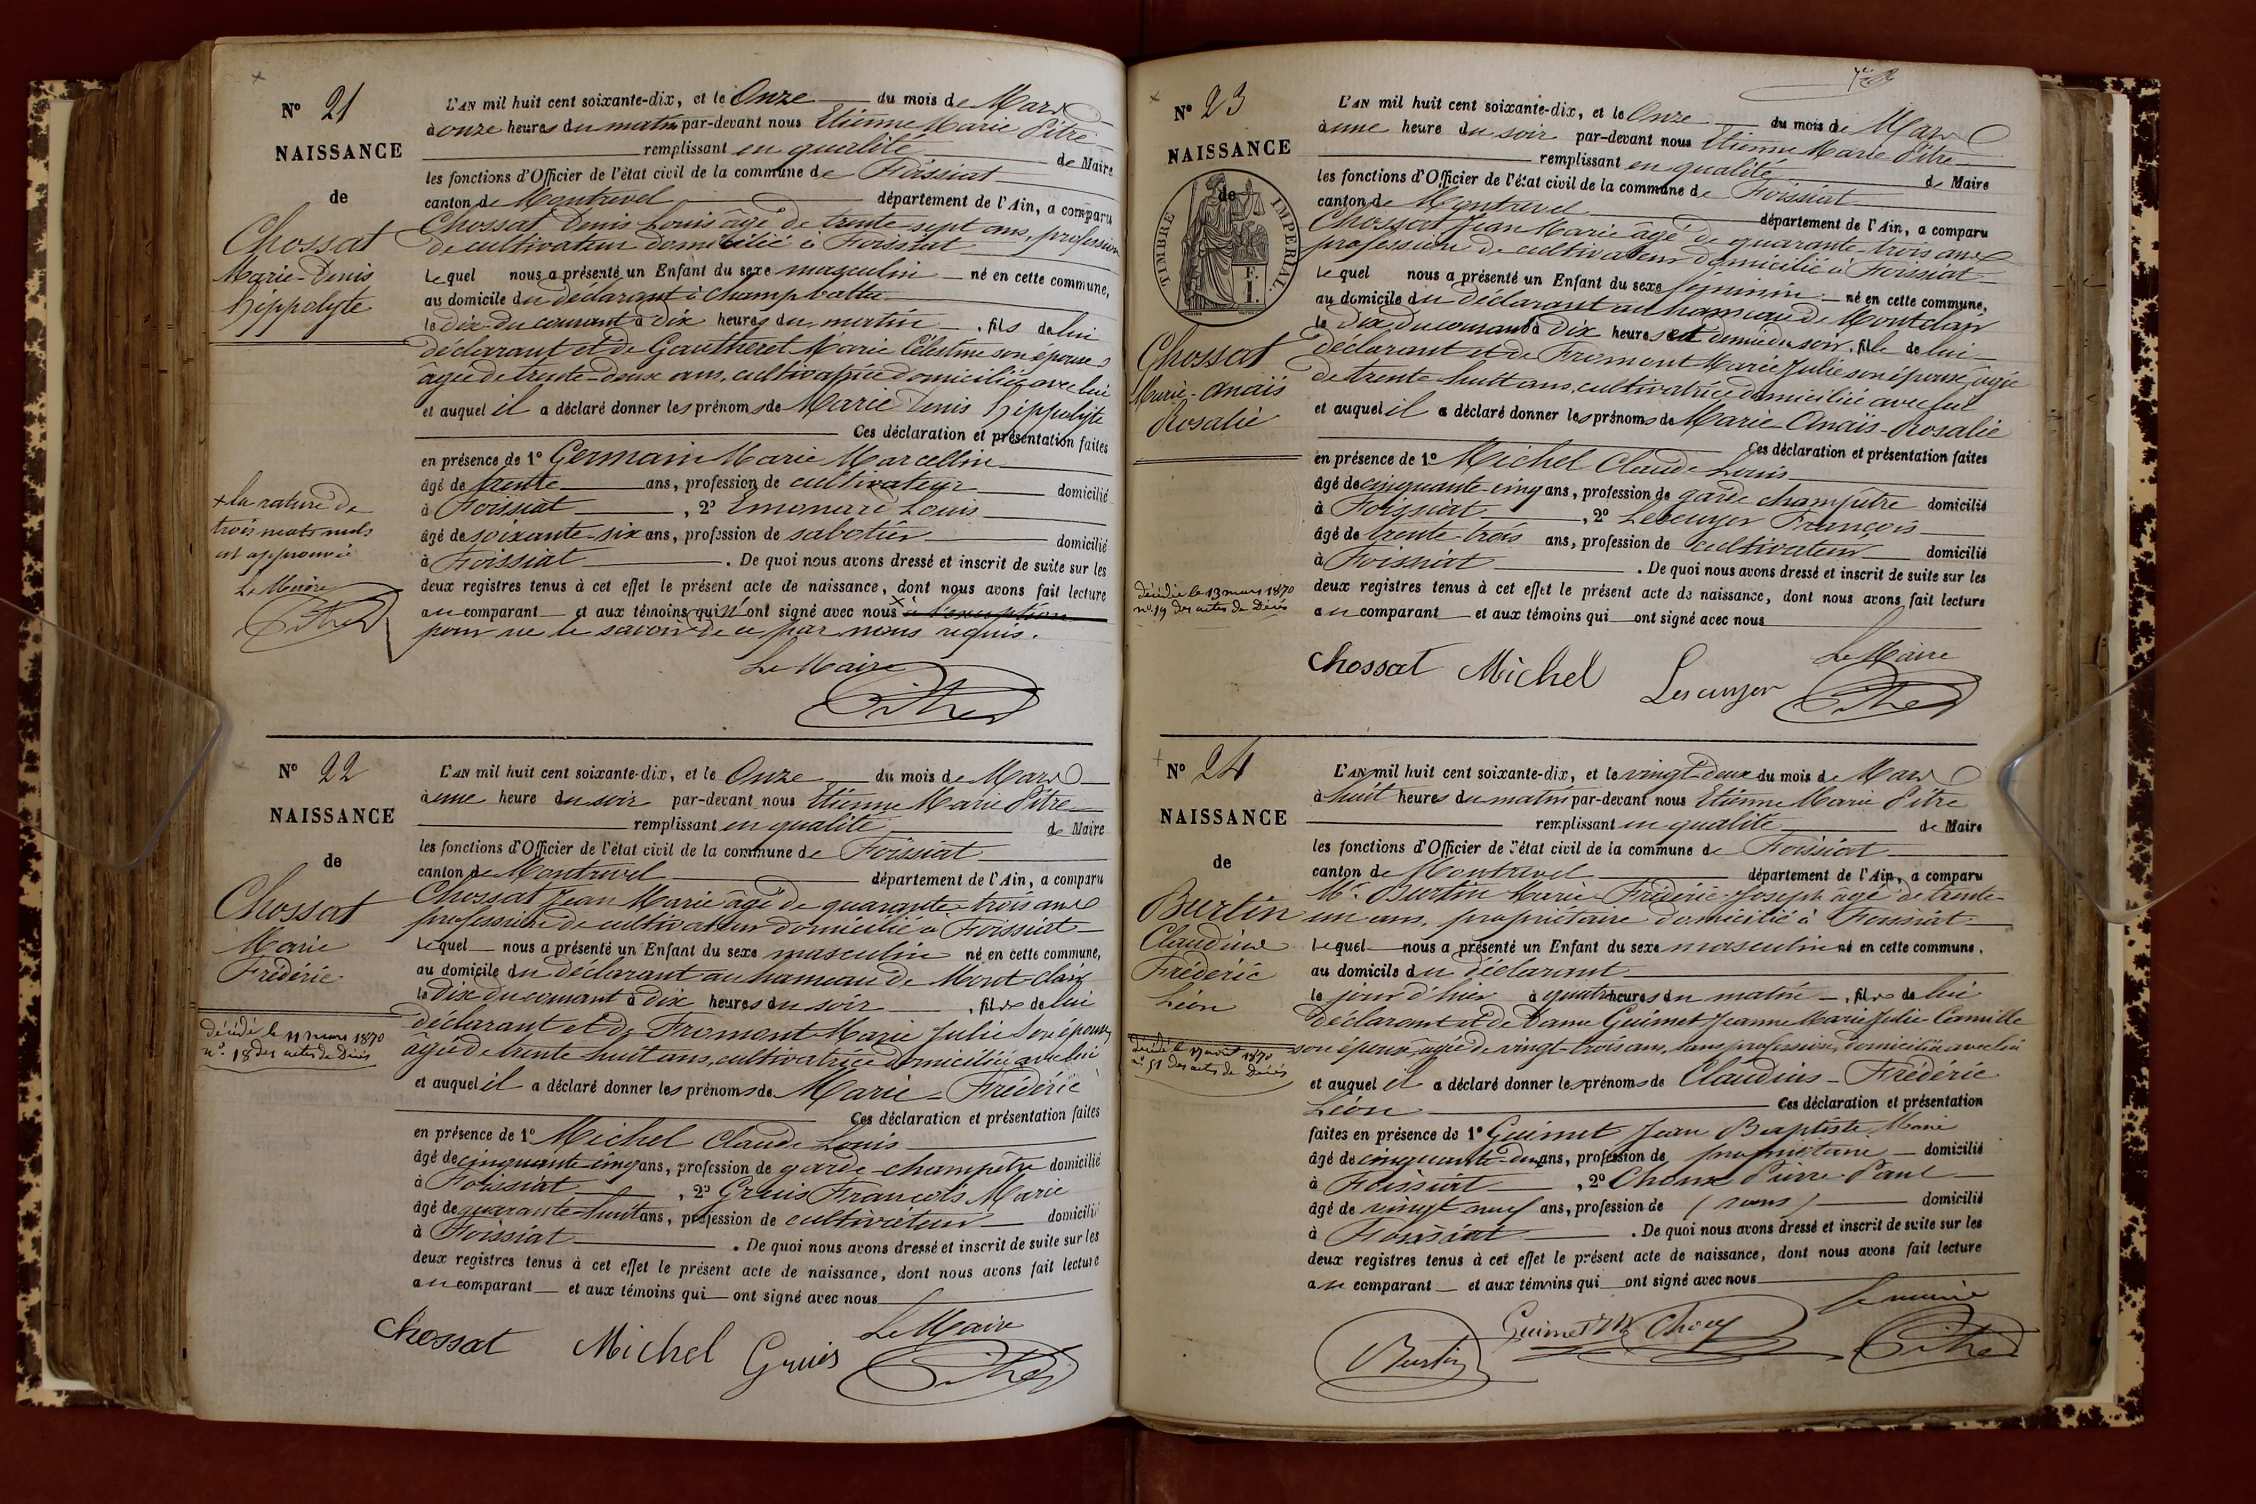 N° 21
NAISSANCE
de
Chossat
Marie-Denis
hippolyte
+ la rature de
trois mots nuls
est approuvée
Le Maire
Pitre
L'AN mil huit cent soixante-dix, et le Onze du mois de Mars
à onze heures du matin par-devant nous Etienne Marie Pitre
remplissant en qualité de Maire
les fonctions d'Officier de l'état civil de la commune de Foissiat
canton de Montrevel département de l'Ain, a comparu
Chossat Denis Louis âgé de trente-sept ans, profession
de cultivateur domicilié à Foissiat
lequel nous a présenté un Enfant du sexe masculin né en cette commune,
au domicile du déclarant à
le dix du courant à dix heures du matin, fils de lui
déclarant et de Gautheret Marie Célestine son épouse
âgée de trente-deux ans, cultivatrice domiciliée avec lui
et auquel il a déclaré donner les prénoms de Marie Denis hippolyte
Ces déclaration et présentation faites
en présence de 1° Germain Marie Marcellin
âgé de trente ans, profession de cultivateur domicilié
à Foissiat, 2° Emonard Louis
âgé de soixante-six ans, profession de sabotier domicilié
à Foissiat. De quoi nous avons dressé et inscrit de suite sur les
deux registres tenus à cet effet le présent acte de naissance, dont nous avons fait lecture
au comparant et aux témoins qui n'ont signé avec nous à l'exception
pour ne le savoir de ce par nous requis.
Le Maire
Pitre
N° 22
NAISSANCE
de
Chossat
Marie
Frédéric
décédé le 11 mars 1870
n° 18 des actes de Décès
L'AN mil huit cent soixante-dix, et le Onze du mois de Mars
à une heure du soir par-devant nous Etienne Marie Pitre
remplissant en qualité de Maire
les fonctions d'Officier de l'état civil de la commune de Foissiat
canton de Montrevel département de l'Ain, a comparu
Chossat Jean Marie âgé de quarante-trois ans
profession de cultivateur domicilié à Foissiat
lequel nous a présenté un Enfant du sexe masculin né en cette commune,
au domicile du déclarant au hameau de
le dix du courant à dix heures du soir, fils de lui
déclarant et de Fromont Marie Julie son épouse
âgée de trente huit ans, cultivatrice domiciliée avec lui
et auquel il a déclaré donner les prénoms de Marie-Frédéric
Ces déclaration et présentation faites
en présence de 1° Michel Claude Louis
âgé de cinquante-cinq ans, profession de garde-champêtre domicilié
à Foissiat, 2° Gruis François Marie
âgé de quarante-huit ans, profession de cultivateur domicilié
à Foissiat. De quoi nous avons dressé et inscrit de suite sur les
deux registres tenus à cet effet le présent acte de naissance, dont nous avons fait lecture
au comparant et aux témoins qui ont signé avec nous
Le Maire
Chossat Michel Gruis Pitre
N° 23
NAISSANCE
de
TIMBRE IMPERIAL.
Chossat
Marie-Anaïs
Rosalie
décédée le 13 mars 1870
n° 19 des actes de Décès
L'AN mil huit cent soixante-dix, et le Onze du mois de Mars
à une heure du soir par-devant nous Etienne Marie Pitre
remplissant en qualité de Maire
les fonctions d'Officier de l'état civil de la commune de Foissiat
canton de Montrevel département de l'Ain, a comparu
Chossat Jean Marie âgé de quarante-trois ans
profession de cultivateur domicilié à Foissiat
lequel nous a présenté un Enfant du sexe féminin né en cette commune,
au domicile du déclarant au hameau de
le dix du courant à dix heures et demie du soir, fille de lui
déclarant et de Fromont Marie Julie son épouse, âgée
de trente-huit ans, cultivatrice domiciliée avec lui
et auquel il a déclaré donner les prénoms de Marie-Anaïs-Rosalie
Ces déclaration et présentation faites
en présence de 1° Michel Claude Louis
âgé de cinquante-cinq ans, profession de garde champêtre domicilié
à Foissiat, 2° Lescuyer François
âgé de trente-trois ans, profession de cultivateur domicilié
à Foissiat. De quoi nous avons dressé et inscrit de suite sur les
deux registres tenus à cet effet le présent acte de naissance, dont nous avons fait lecture
au comparant et aux témoins qui ont signé avec nous
Le Maire
Chossat Michel Lescuyer Pitre
N° 24
NAISSANCE
de
Burtin
Claudius
Frédéric
Léon
décédé le 17 1870
n° 51 des actes de Décès
L'AN mil huit cent soixante-dix, et le vingt-deux du mois de Mars
à huit heures du matin par-devant nous Etienne Marie Pitre
remplissant en qualité de Maire
les fonctions d'Officier de l'état civil de la commune de Foissiat
canton de Montrevel département de l'Ain, a comparu
Mr Burtin Marie-Frédéric-Joseph âgé de trente-
un ans, propriétaire domicilié à Foissiat
lequel nous a présenté un Enfant du sexe masculin né en cette commune,
au domicile du déclarant
le jour d'hier à quatre heures du matin, fils de lui
déclarant et de Dame Guimet Jeanne Marie Julie Camille
son épouse, âgée de vingt-trois ans, sans profession, domiciliée avec lui
et auquel il a déclaré donner les prénoms de Claudius-Frédéric
Léon Ces déclaration et présentation
faites en présence de 1° Guimet Jean Baptiste Marie
âgé de ans, profession de propriétaire domicilié
à Foissiat, 2° Pierre Paul
âgé de vingt neuf ans, profession de (sans) domicilié
à Foissiat. De quoi nous avons dressé et inscrit de suite sur les
deux registres tenus à cet effet le présent acte de naissance, dont nous avons fait lecture
au comparant et aux témoins qui ont signé avec nous
Le maire
Burtin Guimet Pitre